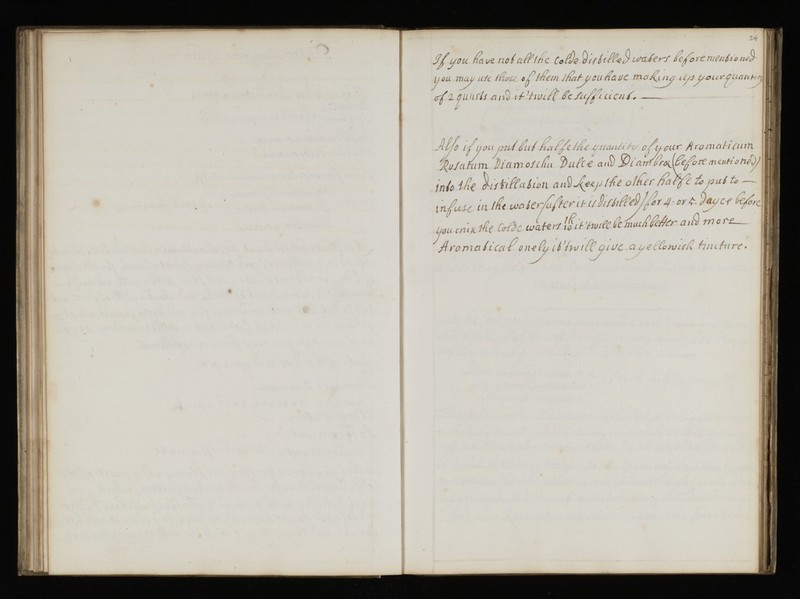 24
If you have not all the Colde distilled waters before mentioned
you may use those of them that you have making up your quantity
of 2 quarts and it'twill be sufficient.
Also if you put but halfe the quantity of your Aromaticum
Rosatum Diamoschu Dulce and Diambra (before mentioned)
into the distillation and keep the other halfe to put to
infuse in the water (after it is distilled) for 4 or 5 Dayes before
you mix the Colde waters it'twill be much better and more
Aromatical onely it'twill give a yellowish tincture.